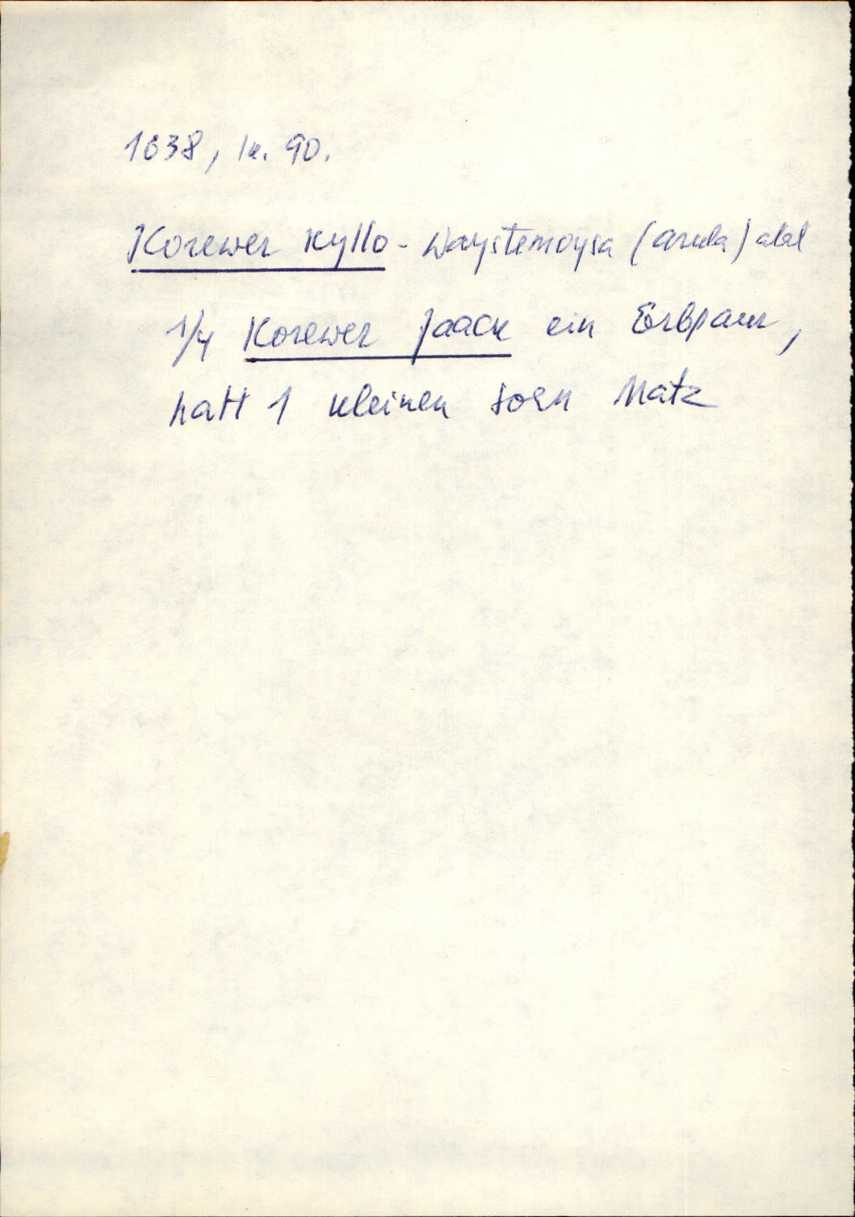 1638, lk. 90.
Korewer Kyllo - Waystemoysa (asula) all
1/4 Korewer Jaack ein Erbpaur,
hatt 1 kleinen sohn Matz